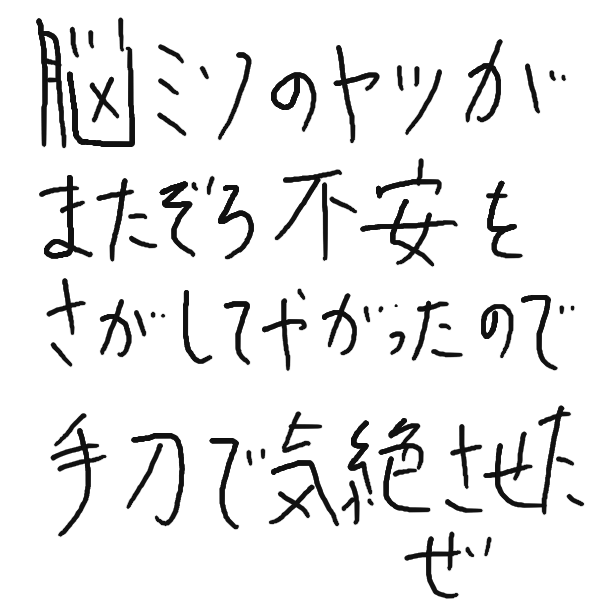 脳ミソのヤツが
またぞろ不安を
さがしてやがったので
手刀で気絶させた
ぜ